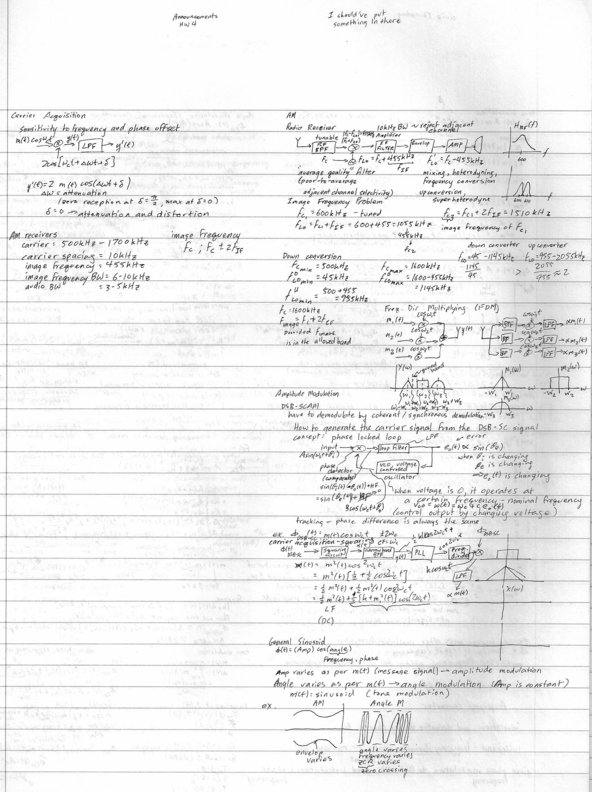 Announcements
HW 4
I should've put
something in there
Carrier Acquisition
sensitivity to frequency and phase offset
m(t) cosωct
g(t)
LPF
y'(t)
2cos[ωct+Δωt+δ]
y'(t)=2 m(t) cos(Δωt+δ)
Δω → attenuation
(zero reception at δ=π/2, max at δ=0)
δ=0 → attenuation and distortion
AM receivers
carrier = 500kHz - 1700kHz
carrier spacing = 10kHz
image frequency = 455kHz
image frequency BW = 6-10kHz
audio BW = 3-5kHz
image frequency
fc, fc ± 2fIF
AM
Radio Receiver
10kHz BW ~ reject adjacent
channel
tunable
RF
BPF
IF
FILTER
Amplifier
Envelop
AMP
HRF(f)
600
fc
fLO = fc+455kHz
fIF
fLO = fc-455kHz
"average quality" filter
(poor-to-average
adjacent channel selectivity)
mixing, heterodyning,
frequency conversion
upconversion
superheterodyne
Image Frequency Problem
fc1 = 600kHz - tuned
fLO = fc1+fIF = 600+455 = 1055kHz
fc2 = fc1+2fIF = 1510kHz
image frequency of fc1
Down conversion
fcmin = 500kHz
fLOmin = 45kHz
fcmax = 1600kHz
fLOmax = 1600-455kHz
= 1145kHz
fLOmin = 500+455
= 955kHz
down converter
fLO = 45-1145kHz
1145
45
upconverter
fLO = 955-2055kHz
2055
955 ≈ 2
fc = 1600kHz
fimage = fc+2fIF
provided fimage
is in the allowed band
Freq. Div Multiplying (FDM)
m1(t)
cosω1t
m2(t)
cosω2t
m3(t)
cosω3t
y(t)
BPF
LPF
αm1(t)
αm2(t)
αm3(t)
Y(ω)
M1(ω)
M2(ω)
M3(ω)
Amplitude Modulation
DSB-SCAM
have to demodulate by coherent/synchronous demodulation
How to generate the carrier signal from the DSB-SC signal
concept: phase locked loop
Input
Asin(ωct+θi)
LPF
Loop Filter
error
eo(t) ∝ sin(θe)
when θi is changing
θe is changing
⇒ eo(t) is changing
phase
detector
(comparator)
VCO, voltage
controlled
oscillator
Bcos(ωct+θo)
When voltage is 0, it operates at
a certain frequency - nominal frequency
(control output by changing voltage)
tracking - phase difference is always the same
ex. ΦDSB-SC(t) = m(t)cosωct
carrier acquisition-squaring
Φ(t)
DSB-SC
Squaring
circuit
Narrowband
BPF
PLL
Freq
divider
kcosωct
LPF
αm(t)
x(t) = m²(t) cos²ωct
= m²(t)[½ + ½ cos2ωct]
= ½m²(t) + ½m²(t) cos2ωct
= ½m²(t) + ½[k+m1²(t)]cos(2ωct)
LF
(DC)
X(ω)
General Sinusoid
φ(t) = (Amp) cos(angle)
frequency, phase
Amp varies as per m(t) (message signal) → amplitude modulation
Angle varies as per m(t) → angle modulation (Amp is constant)
m(t): sinusoid (tone modulation)
ex.
AM
Angle M
envelop
varies
angle varies
frequency varies
ZCR varies
zero crossing